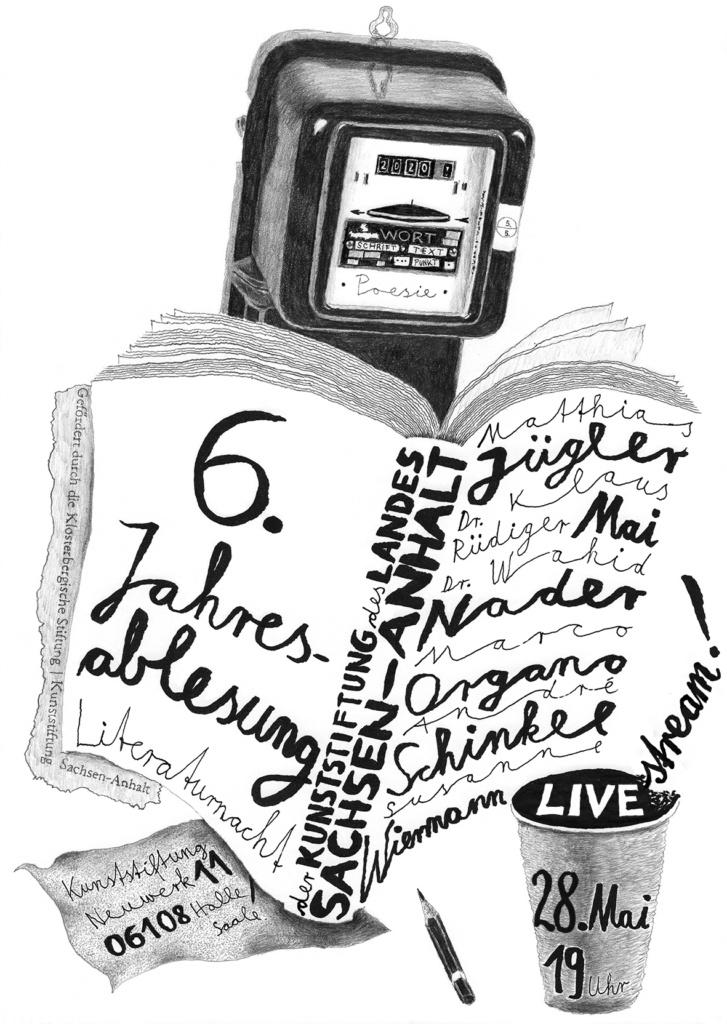 2020
5.
5.
WORT
SCHRIFT TEXT
PUNKT
Poesie
Gefördert durch die Klosterbergische Stiftung | Kunststiftung
Sachsen-Anhalt
6.
Jahres-
ablesung
Literaturnacht
der KUNSTSTIFTUNG des LANDES
SACHSEN-ANHALT
Matthias
Jügler
Klaus
Dr. Rüdiger Mai
Dr. Wahid
Nader
Marco
Organo
André
Schinkel
Susanne
Wiermann
LIVE
stream!
28. Mai
19 Uhr
Kunststiftung
Neuwerk 11
06108 Halle/
Saale